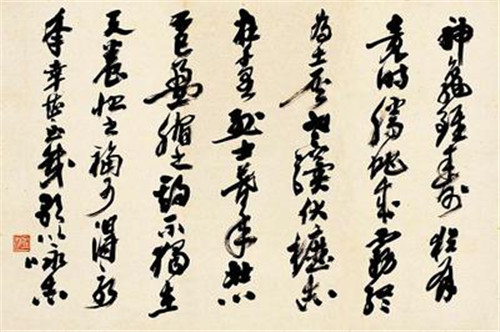 神龜雖壽猶有
竟時騰蛇乘霧終
為土灰老驥伏櫪志
在千里烈士暮年壯心
不已盈縮之期不獨在
天養怡之福可得永
年幸甚至哉歌以詠志